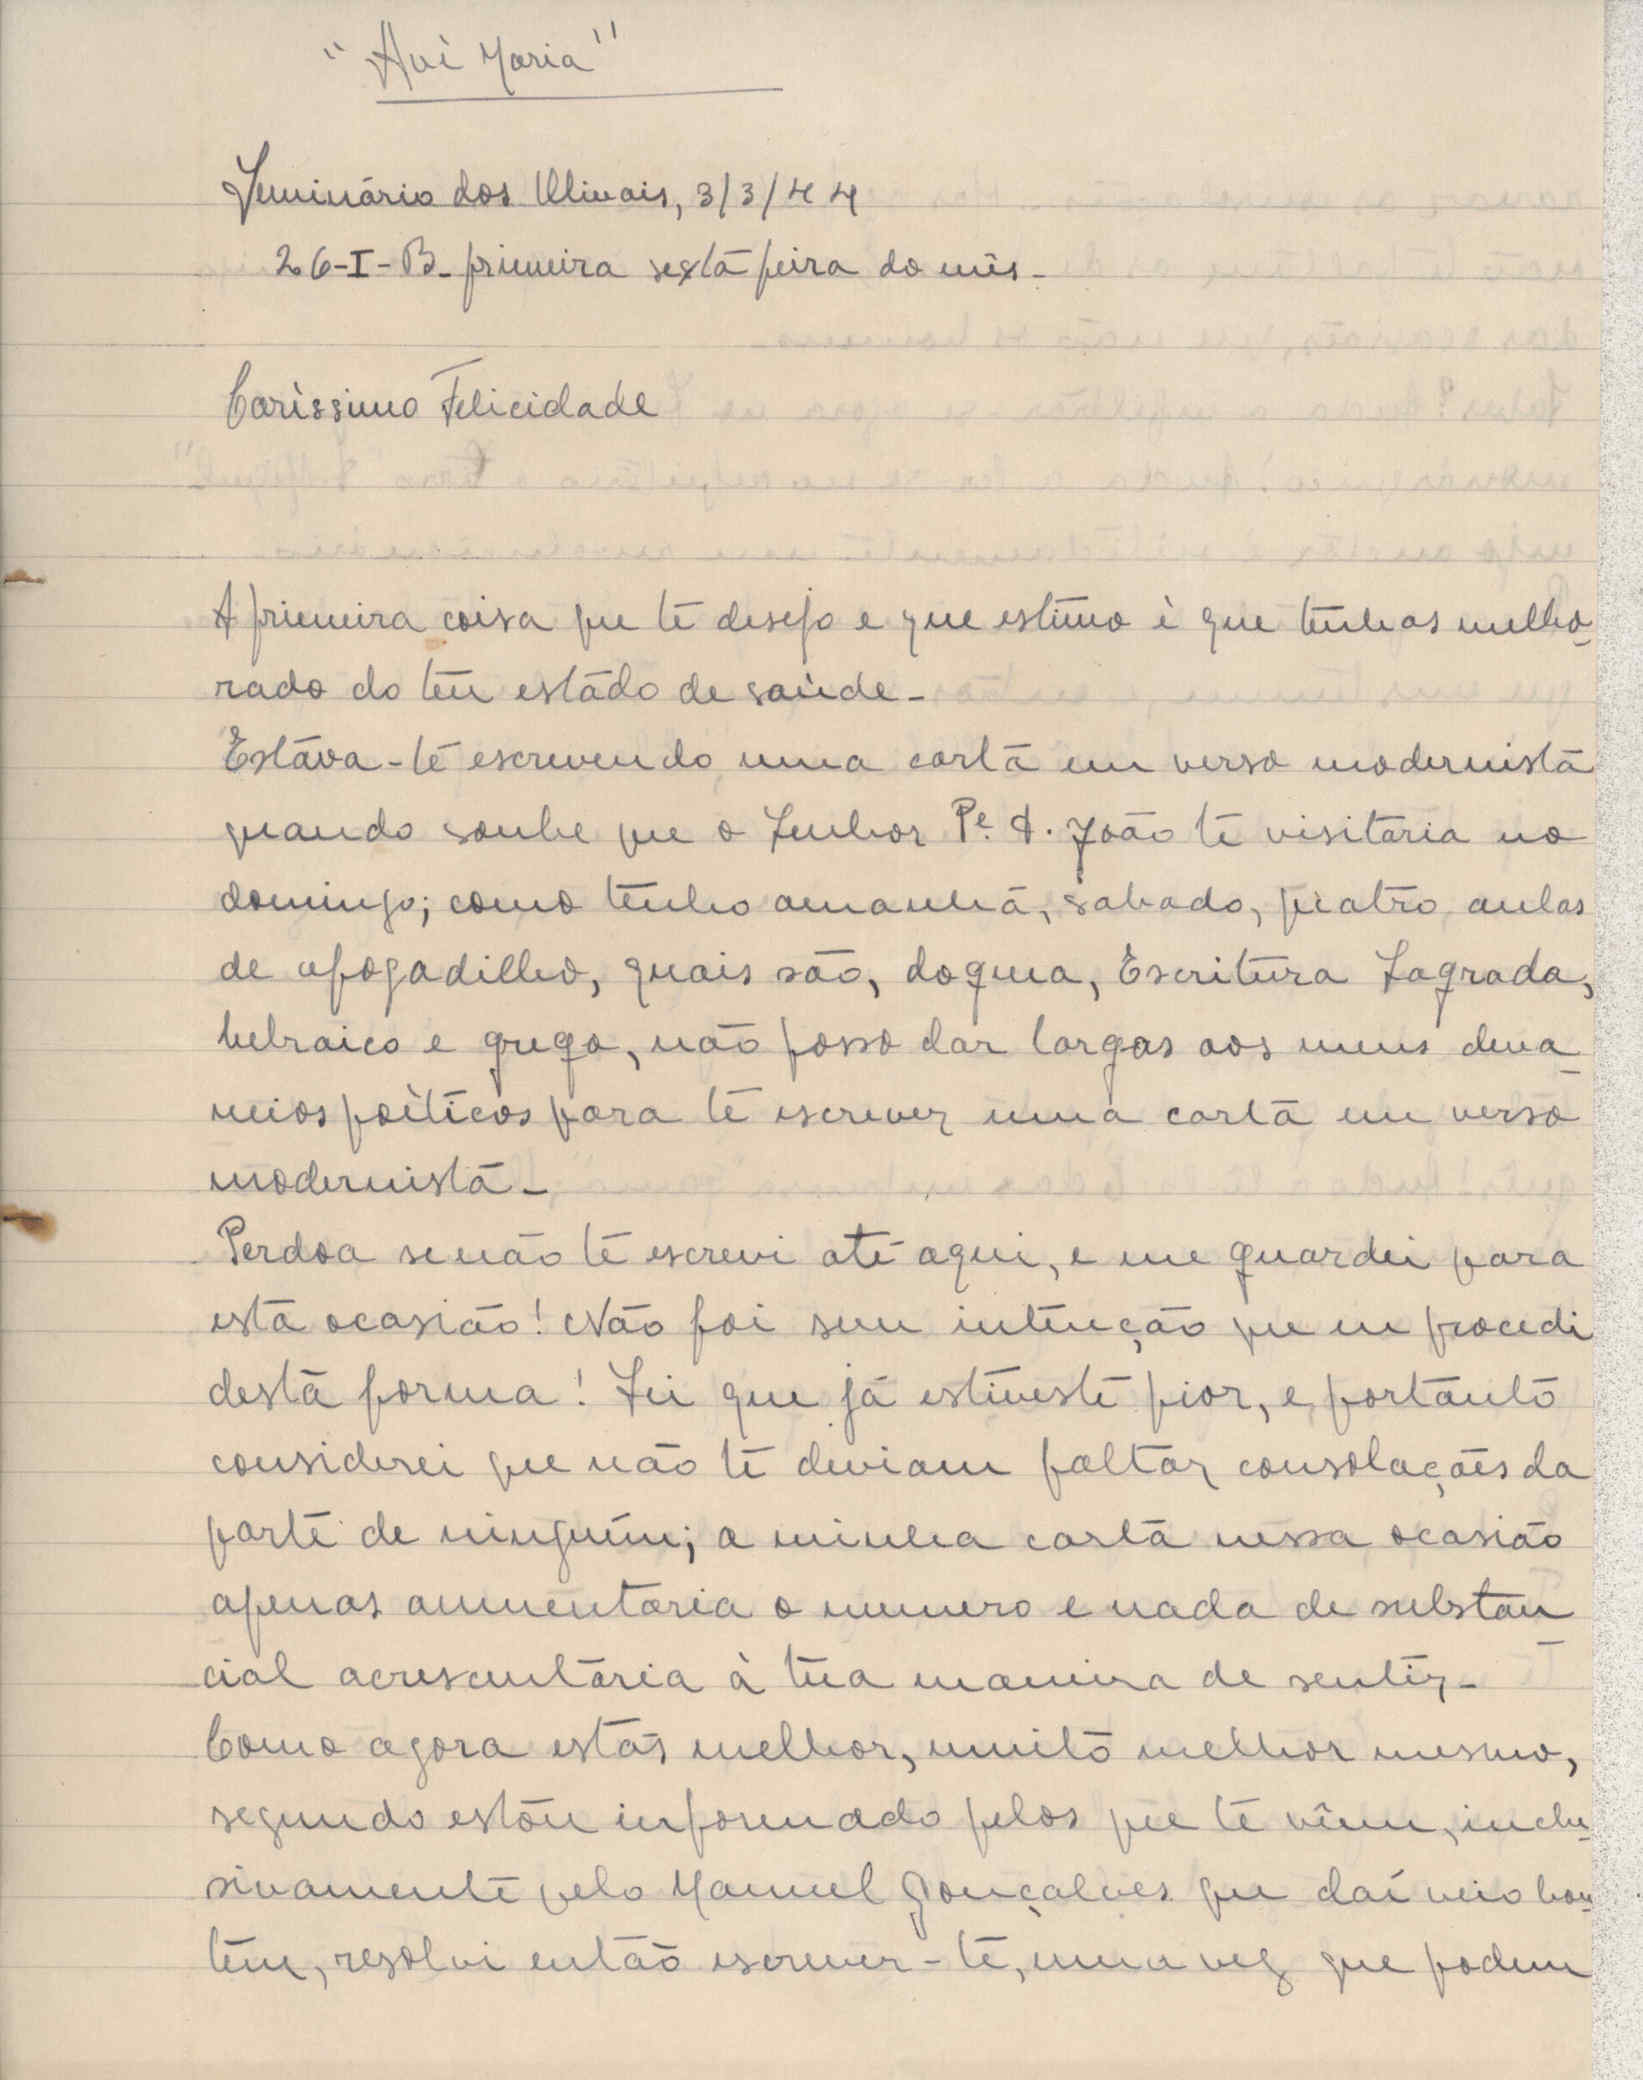 "Avè Maria"
Seminário dos Olivais, 3/3/44
26-I-B- primeira sexta feira do mês-
Caríssimo Felicidade
A primeira coisa que te desejo e que estimo è que tenhas melho-
rado do teu estado de saúde-
Estava-te escrevendo uma carta em verso modernista
quando soube que o Senhor Pe. D. João te visitaria no
domingo; como tenho amanhã, sabado, quatro aulas
de afogadilho, quais são, dogma, Escritura Sagrada,
hebraico e grego, não posso dar largas aos meus deva-
neios poèticos para te escrever uma carta em verso
modernista-
Perdoa se não te escrevi até aqui, e me guardei para
esta ocasião! Não foi sem intenção que eu procedi
desta forma! Sei que já estiveste pior, e, portanto
considerei que não te deviam faltar consolações da
parte de ninguém; a minha carta nessa ocasião
apenas aumentaria o numero e nada de substan
cial acrescentaria à tua maneira de sentir-
Como agora estás melhor, muito melhor mesmo,
segundo estou informado pelos que te vêem, inclu-
sivamente pelo Manuel Gonçalves que daí veio hon-
tem, resolvi então escrever-te, uma vez que podem